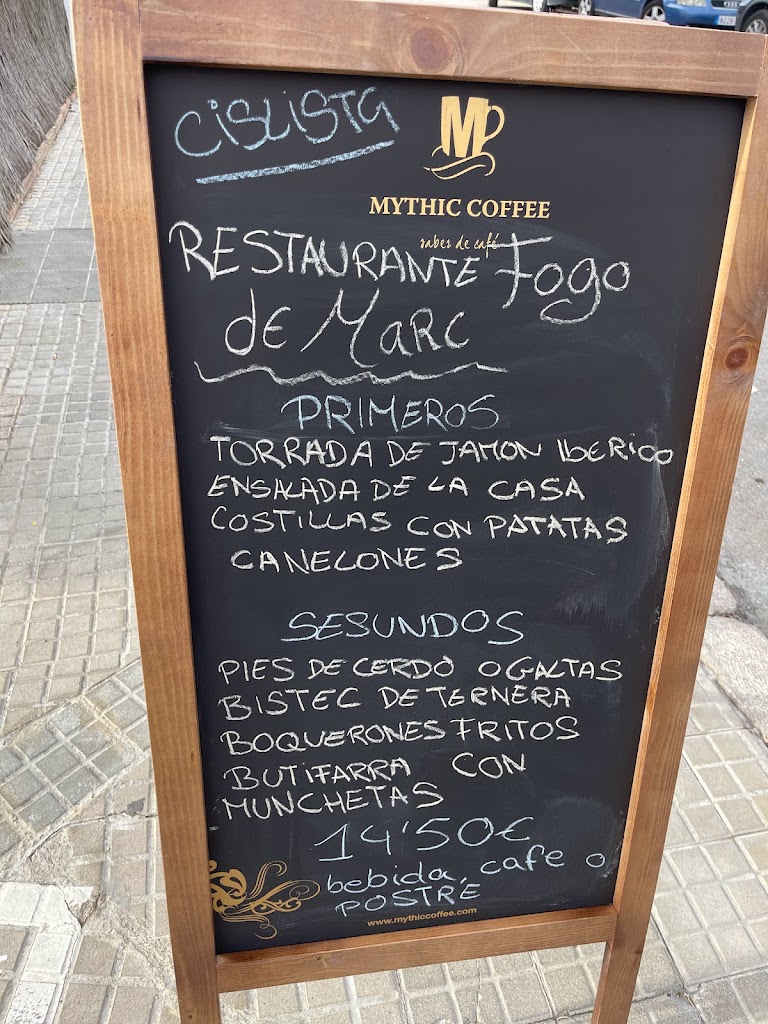 CISLISTG
M
MYTHIC COFFEE
saber de café
RESTAURANTE Fogo
de MARC
PRIMEROS
TORRADA DE JAMON IBERICO
ENSALADA DE LA CASA
COSTILLAS CON PATATAS
CANELONES
SESUNDOS
PIES DE CERDO O GALTAS
BISTEC DE TERNERA
BOQUERONES FRITOS
BUTIFARRA CON
MUNCHETAS
14'50€
bebida, cafe o
POSTRE
www.mythiccoffee.com